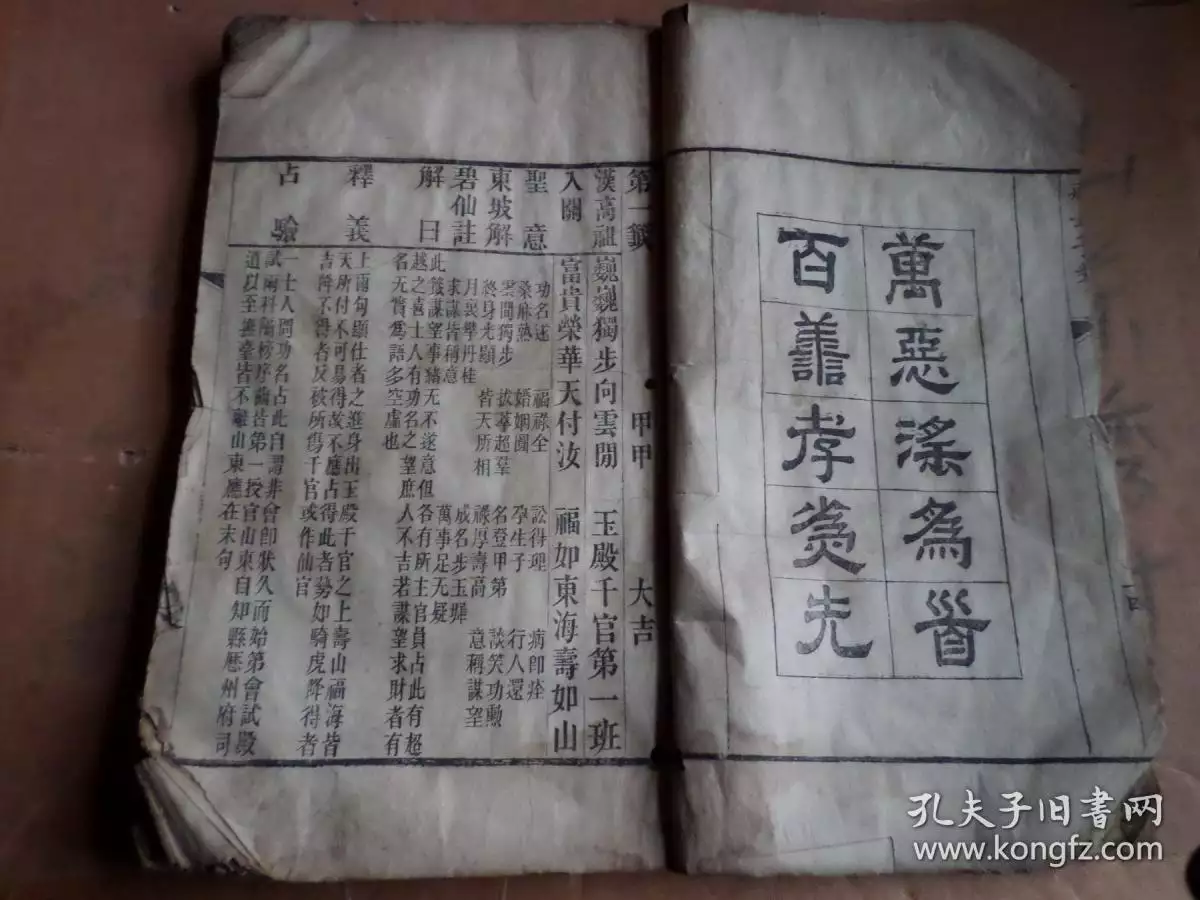 萬惡淫為首
百善孝為先
第一籤 甲甲 大吉
漢高祖入關
巍巍獨步向雲間 玉殿千官第一班
富貴榮華天付汝 福如東海壽如山
聖意
功名遂 福祿全 訟得理 病即痊
桑麻熟 婚姻圓 孕生子 行人還
東坡解
雲間獨步 拔萃超羣 名登甲第 談笑功勳
終身光顯 皆天所相 祿厚壽高 意稱謀望
碧仙註
月裏攀丹桂 成名步玉墀
求謀皆稱意 萬事足无疑
解曰
此籤謀望事緒无不遂意但各有所主官員占此有超
越之喜士人有功名之望庶人不吉若謀望求財者有
名无實為語多空虛也
釋義
上兩句顯仕者之進身出玉殿千官之上壽山福海皆
天所付不可易得汝不應占得此者勢如騎虎降得者
吉降不得者反被所傷千官或作仙官
占驗
一士人問功名占此自謂非會即狀久而始第會試殿
試兩科隔榜序齒皆第一授官山東自知縣歷州府司
道以至撫臺皆不離山東應在末句
孔夫子旧书网
www.kongfz.com